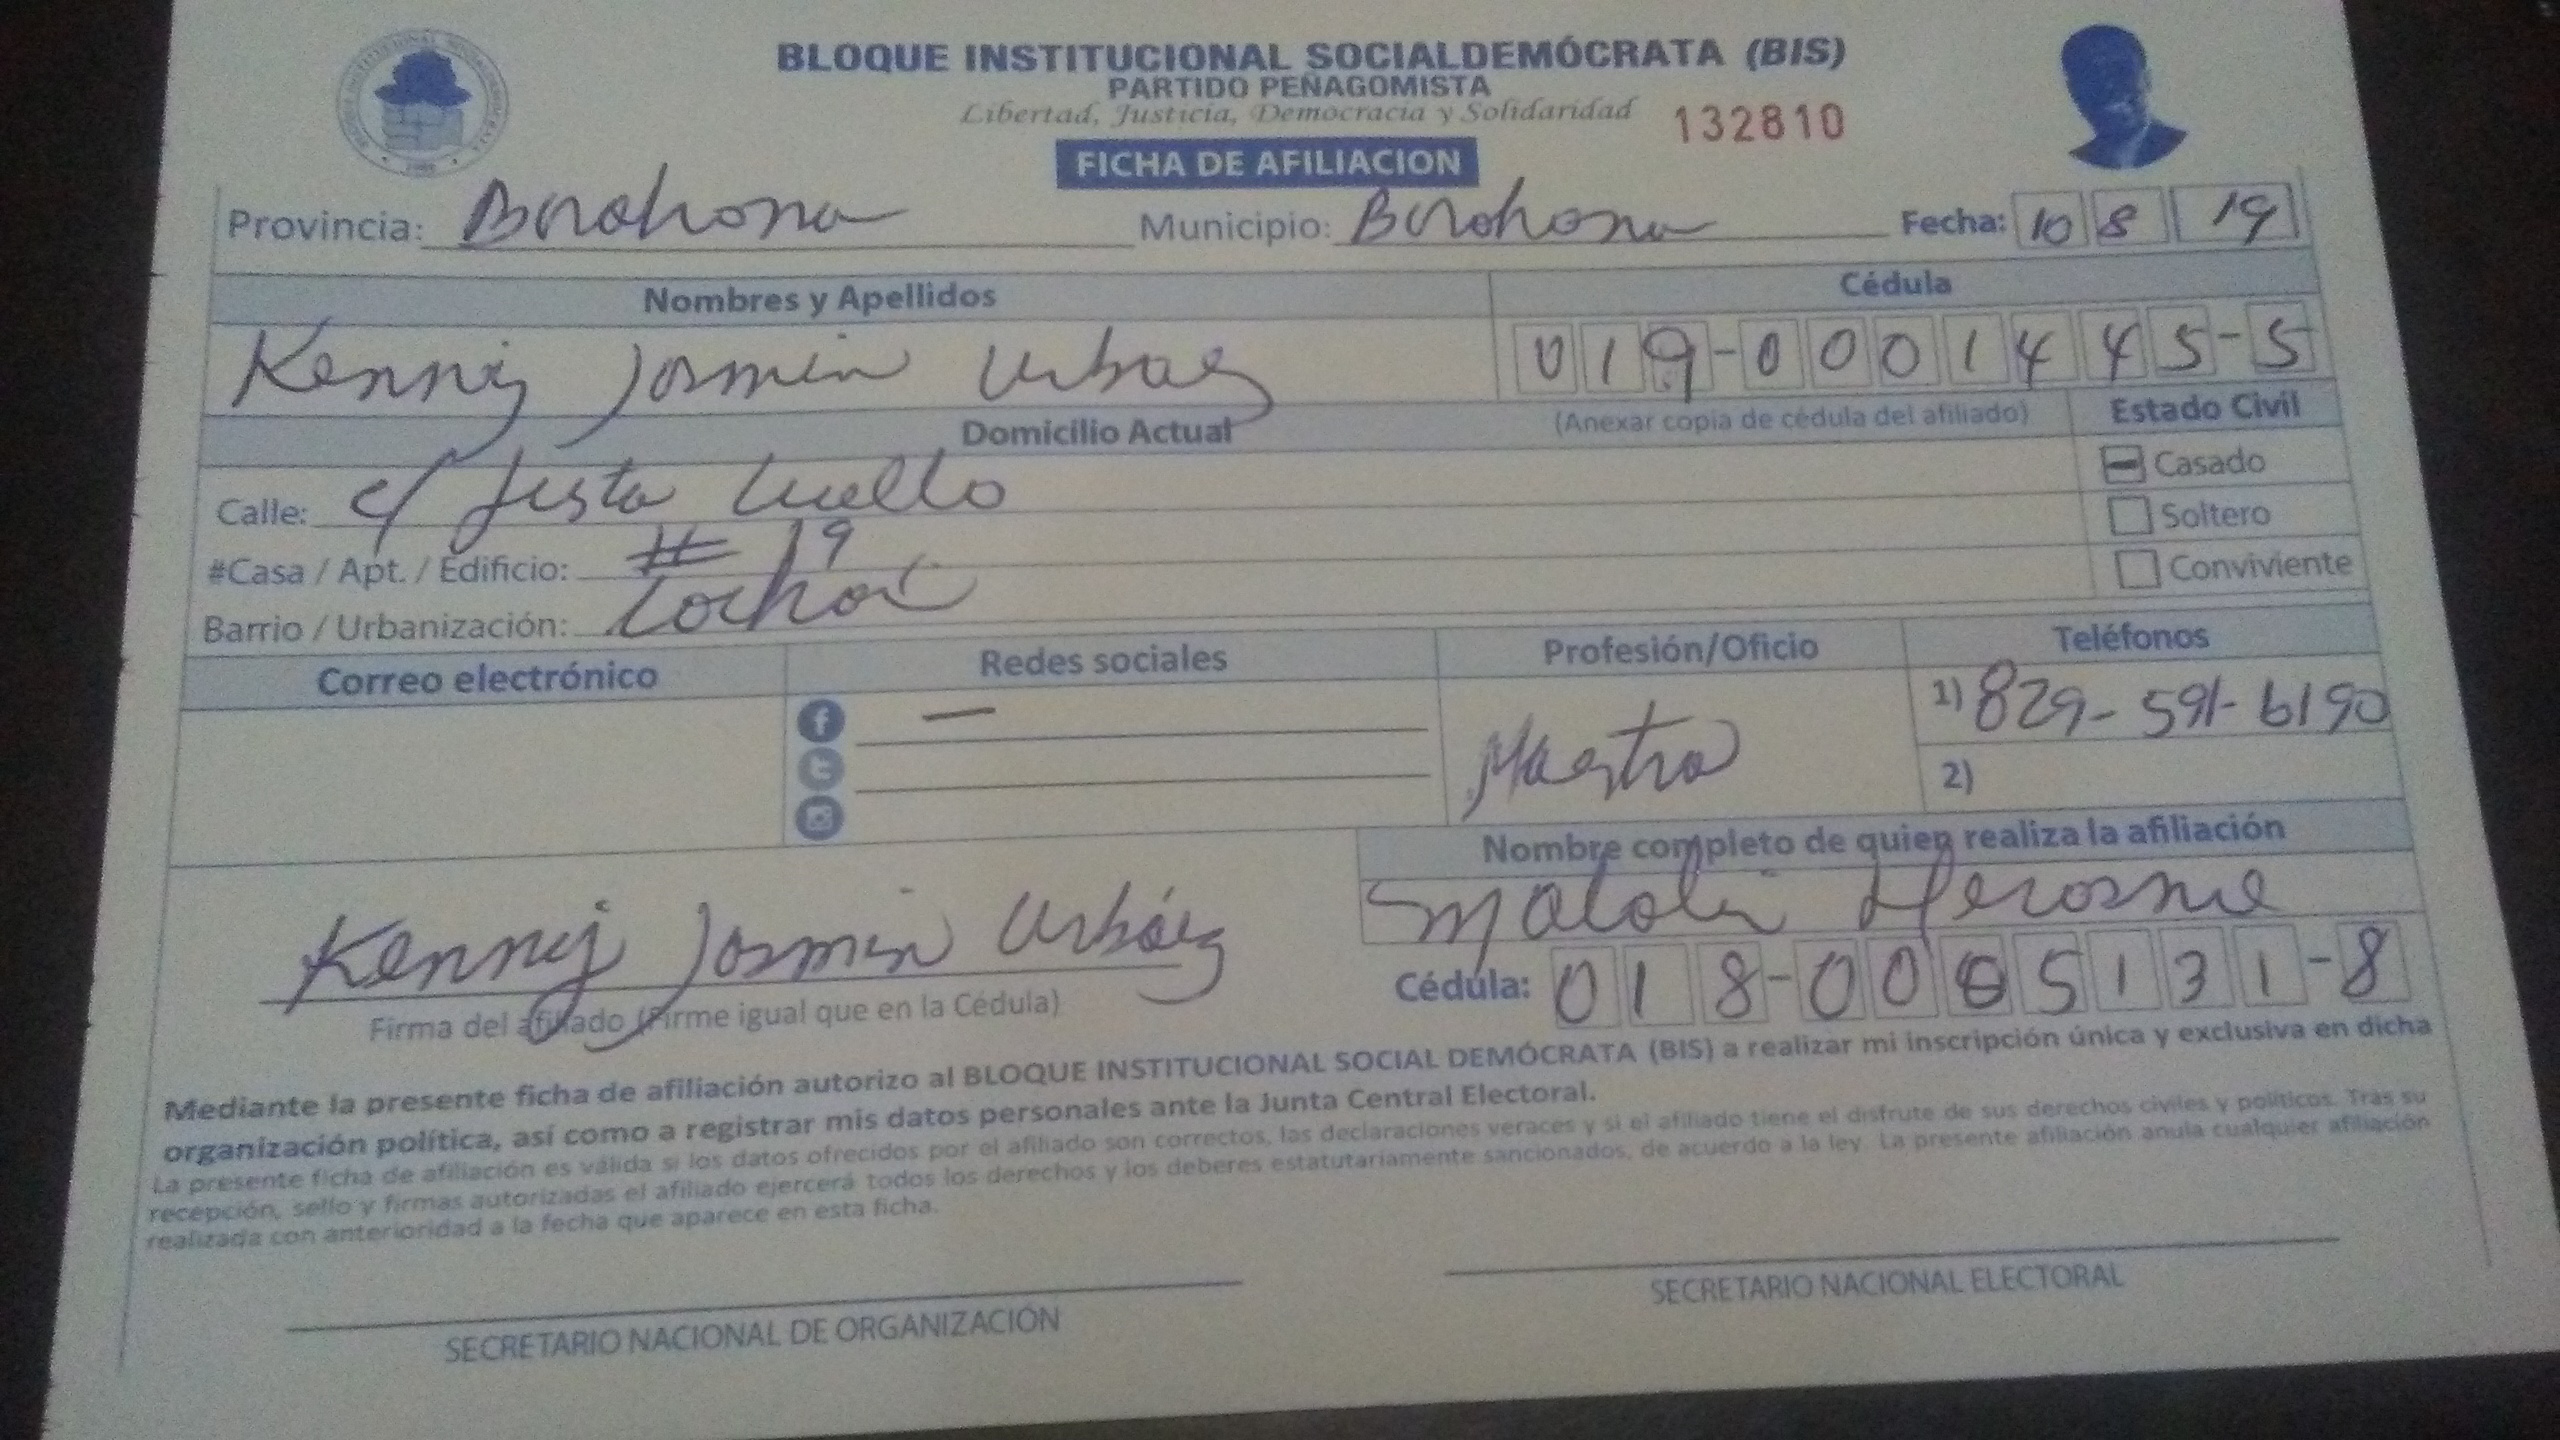 BLOQUE INSTITUCIONAL SOCIALDEMÓCRATA (BIS)
PARTIDO PEÑAGOMISTA
Libertad, Justicia, Democracia y Solidaridad 132810
FICHA DE AFILIACION
Provincia: Barahona Municipio: Barahona Fecha: 10 8 19
Nombres y Apellidos Cédula
Kenny Jasmin Urbaez 019-0001445-5
Domicilio Actual (Anexar copia de cédula del afiliado) Estado Civil
Calle: c/ Justa Cuello Casado
#Casa / Apt. / Edificio: # 19 Soltero
Barrio / Urbanización: Conviviente
Correo electrónico Redes sociales Profesión/Oficio Teléfonos
f — Maestra 1) 829-591-6190
2)
Nombre completo de quien realiza la afiliación
Kenny Jasmin Urbáez
Firma del afiliado (Firme igual que en la Cédula) Cédula: 018-0065131-8
Mediante la presente ficha de afiliación autorizo al BLOQUE INSTITUCIONAL SOCIAL DEMÓCRATA (BIS) a realizar mi inscripción única y exclusiva en dicha
organización política, así como a registrar mis datos personales ante la Junta Central Electoral.
La presente ficha de afiliación es válida si los datos ofrecidos por el afiliado son correctos, las declaraciones veraces y si el afiliado tiene el disfrute de sus derechos civiles y políticos. Tras su
recepción, sello y firmas autorizadas el afiliado ejercerá todos los derechos y los deberes estatutariamente sancionados, de acuerdo a la ley. La presente afiliación anula cualquier afiliación
realizada con anterioridad a la fecha que aparece en esta ficha.
SECRETARIO NACIONAL DE ORGANIZACIÓN SECRETARIO NACIONAL ELECTORAL